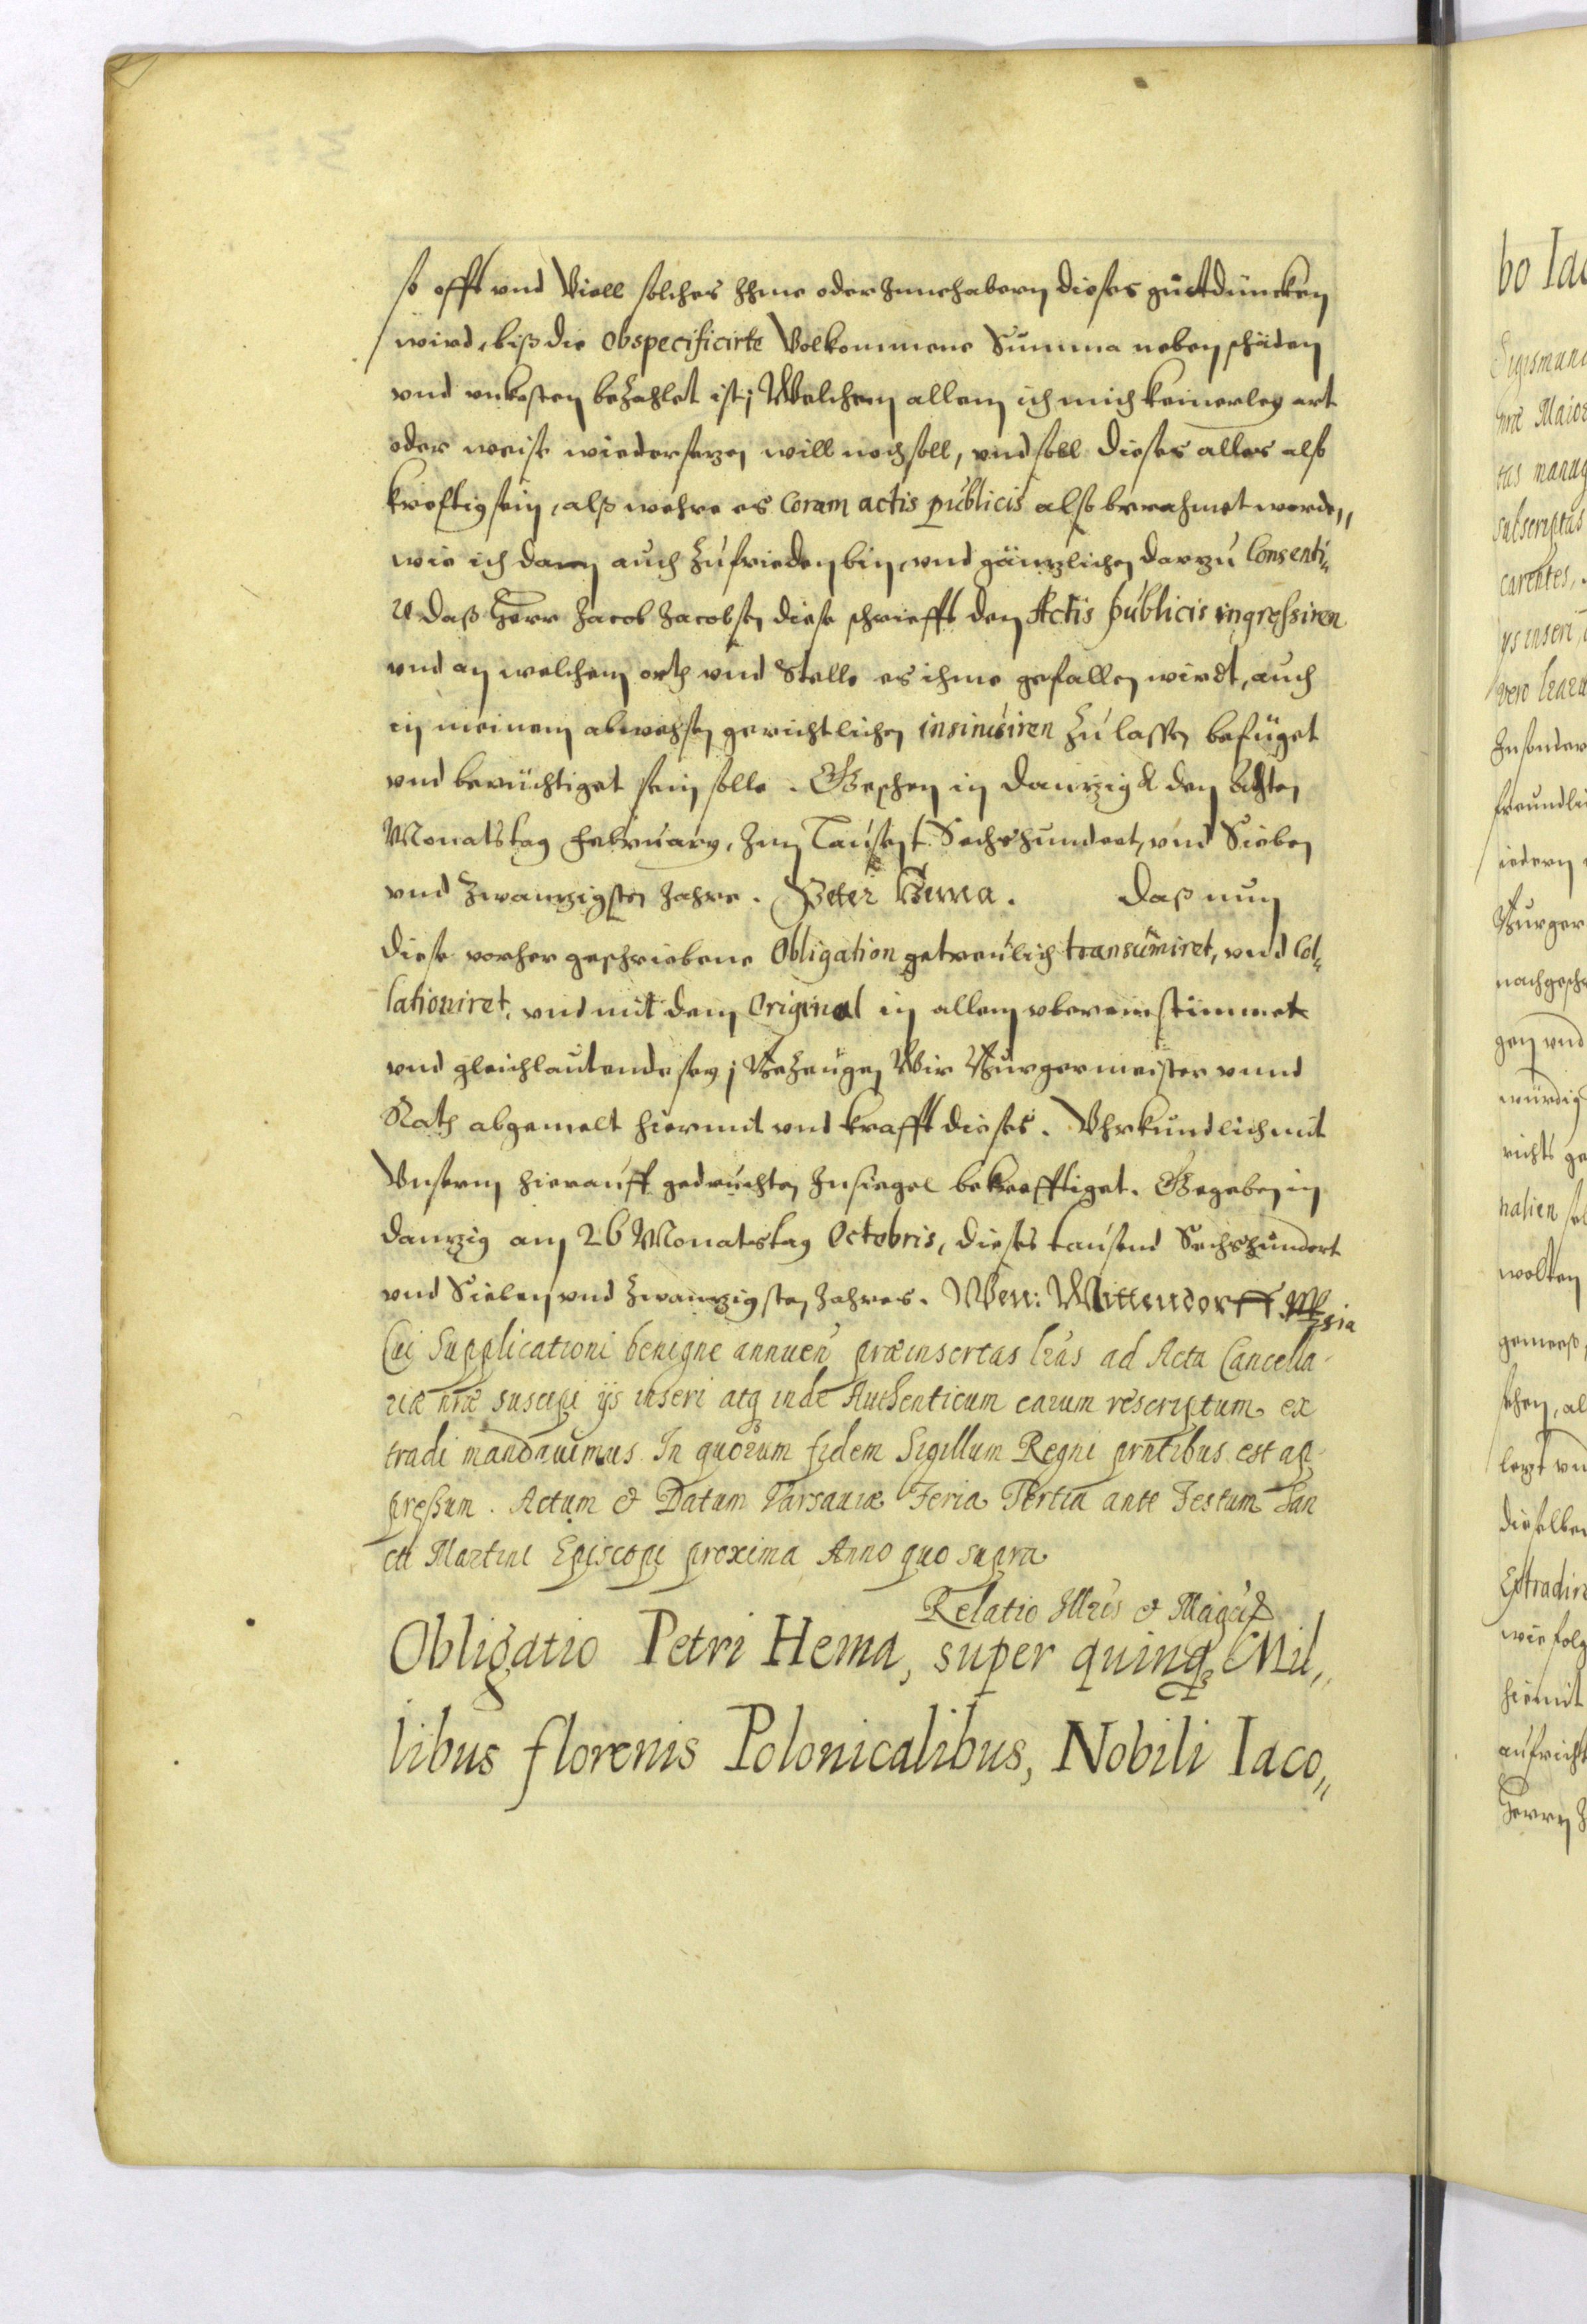 so offt vnd Viell solches Ihme oder Innehabern dieses gůttdüncken
wird, biß die obspecificirte Volkommene Summa neben schäden
vnd vnkosten bezahlet ist; Welchem allem ich mich keinerley art
oder weise wiedersetzen will noch soll, vnd soll dieses alles also
kreftig sein, alß wehre es Coram actis publicis also berahmet worden,,
wie ich dann auch zufrieden bin, vnd gäntzlichen darzu Consenti„
re daß Herr Jacob Jacobsen diese schriefft den Actis publicis ingressiren
vnd an welchem orth vnd Stelle es ihme gefallen wirdt, auch
in meinem abwehsen gerichtlichen insinuiren zu lassen befüget
vnd bemächtiget sein solle. Geschen in Dantzigk den achten
Monatstag February, Im Tausent Sechshundert, vnd Sieben
vnd Zwantzigsten Jahre. Peter Hema. Daß nun
diese vorher geschriebene Obligation getreulich transumiret, vnd Col„
lationiret, vnd mit dem Original in allem vbereinstimmet
vnd gleichlautende sey; Bezeugen Wir Burgermeister vnnd
Rath abgemelt hiermit vnd krafft dieses. Vhrkundlich mit
Vnserm hierauff gedruckten Insiegel bekrefftiget. Gegeben in
Dantzig am 26 Monatstag Octobris, dieses tausend Sechshundert
vnd Sieben vnd Zwantzigsten Jahres. Wen: Mittendorff
Cui Supplicationi benigne annuen præinsertas lras ad Acta Cancella-
riæ nræ suscipi ijs inseri atq inde Authenticum earum rescriptum ex
tradi mandauimus. In quorum fidem Sigillum Regni prntibus est ap-
pressum. Actum & Datum Varsauiæ Feria Tertia ante Festum San
cti Martini Episcopi proxima Anno quo supra
Relatio Illris & Magci
Obligatio Petri Hema, super quinq Mil„
libus florenis Polonicalibus, Nobili Iaco„
bo Iac
Sigismund
nræ Maior
subscriptas
carentes,
ijs inseri
vero
Insonder
freundli
iedern
Burger
nachgesch
gen vnd
würdig
richts ge
nalien sol
wolten
gemeeß
sehen, al
letzt vn
dieselben
Extradire
wie folg
hiemit
aufricht
Herrn J